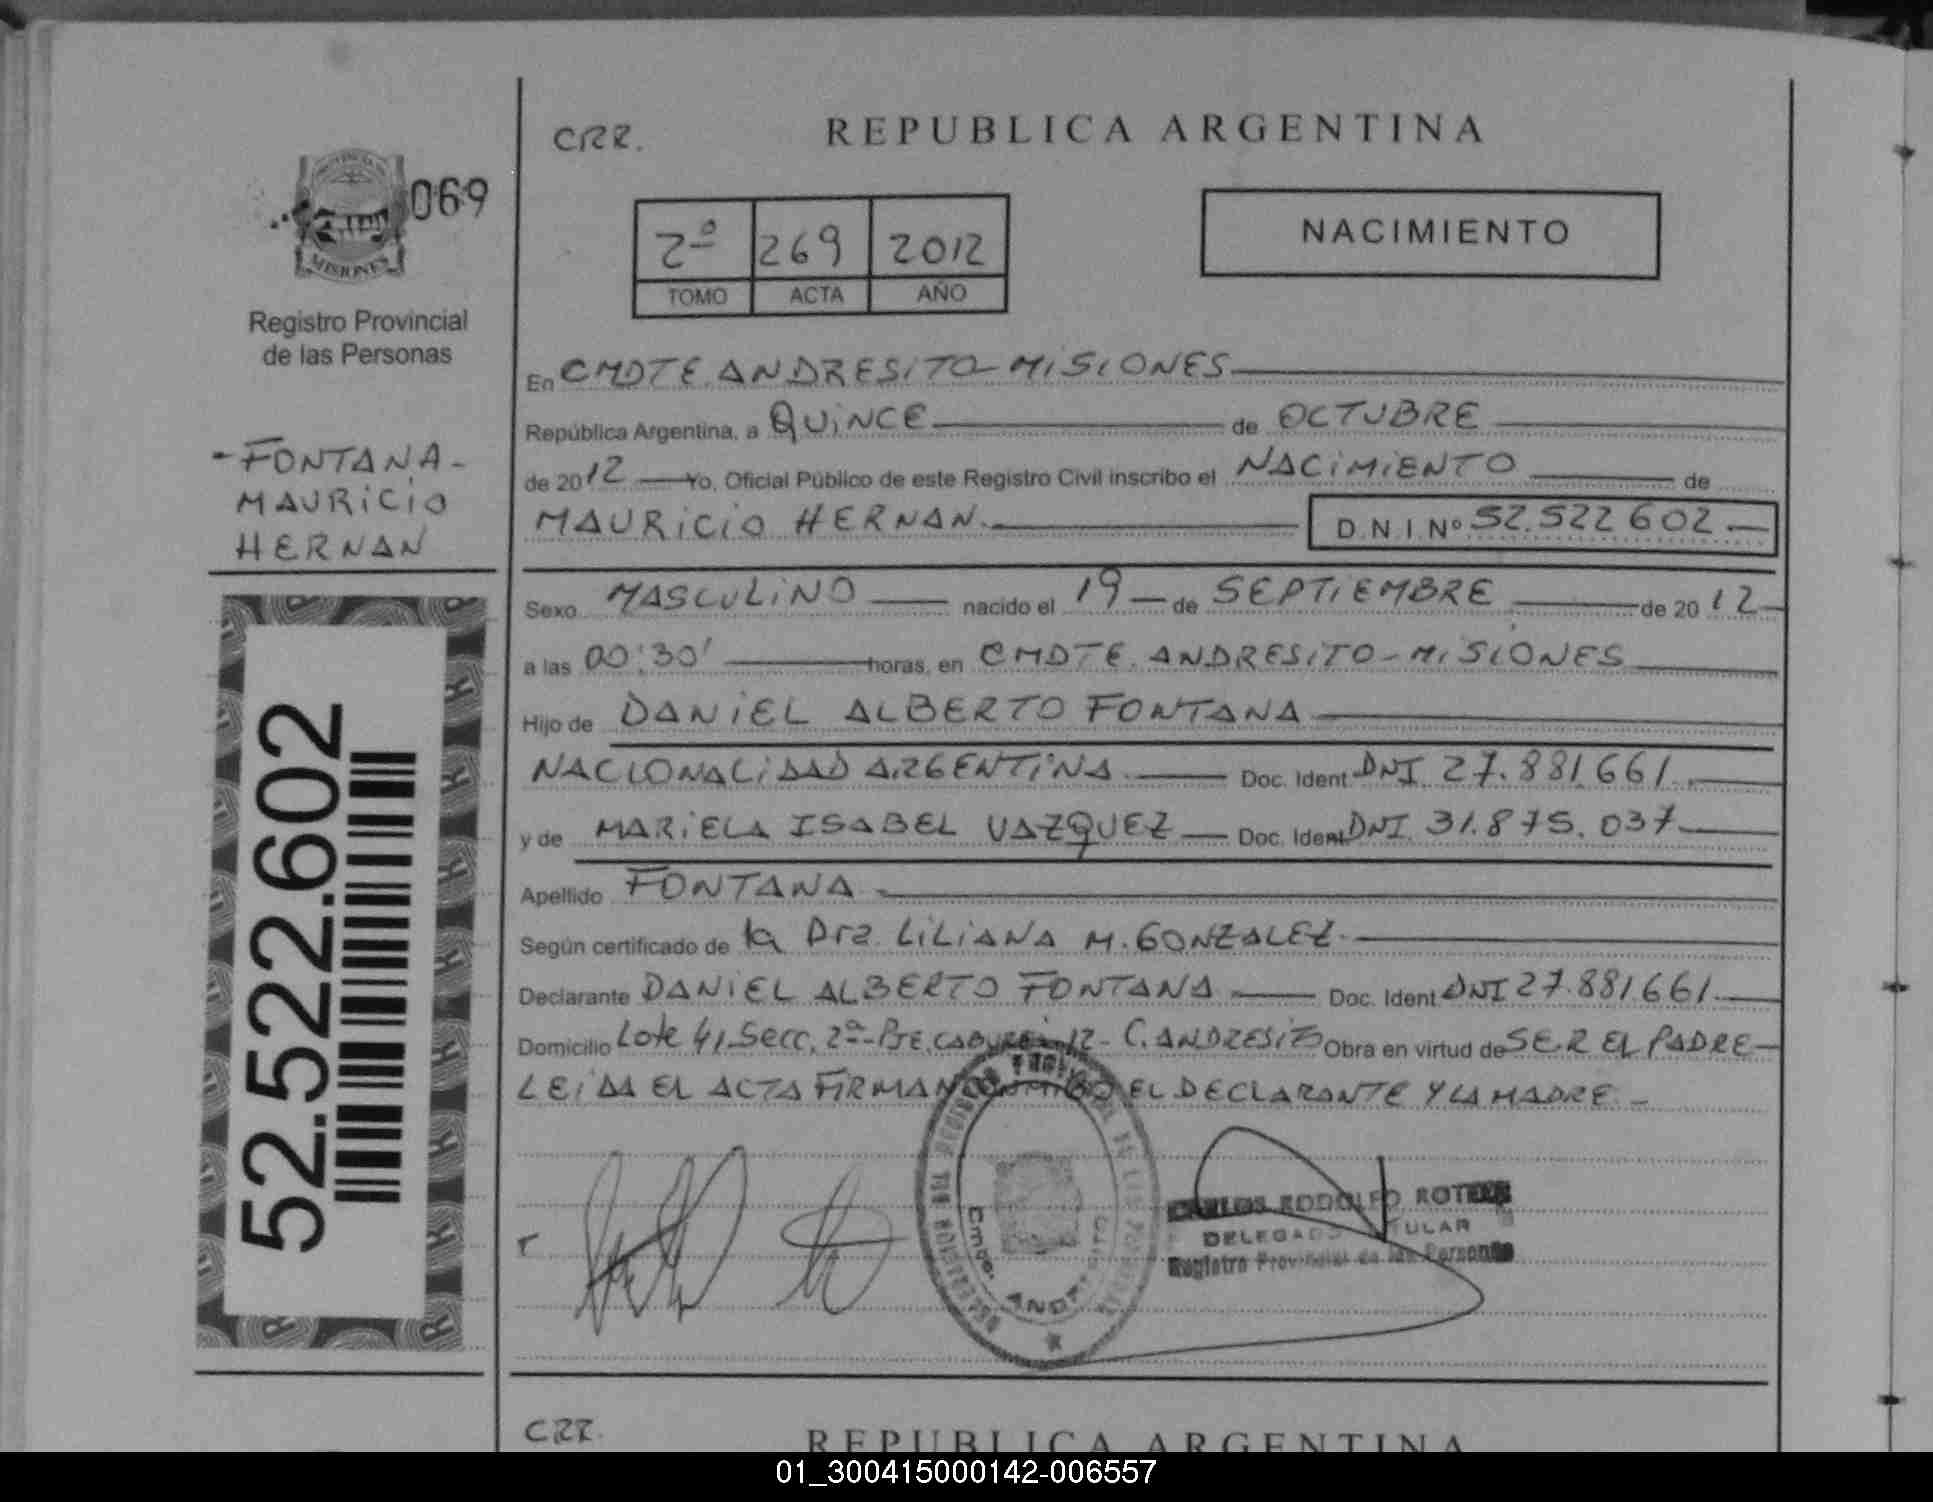 CRR.
REPUBLICA ARGENTINA
069
MISIONES
Registro Provincial
de las Personas
2º 269 2012
TOMO ACTA AÑO
NACIMIENTO
- FONTANA -
MAURICIO
HERNAN
52.522.602
En CMDTE. ANDRESITO - MISIONES
República Argentina, a QUINCE de OCTUBRE
de 2012 Yo, Oficial Público de este Registro Civil inscribo el NACIMIENTO de
MAURICIO HERNAN. D.N.I.Nº 52.522 602
Sexo MASCULINO nacido el 19 de SEPTIEMBRE de 2012
a las 00:30' horas, en CMDTE. ANDRESITO - MISIONES
Hijo de DANIEL ALBERTO FONTANA
NACIONALIDAD ARGENTINA. Doc. Ident. DNI 27.881.661.
y de MARIELA ISABEL VAZQUEZ Doc. Ident. DNI. 31.875.037
Apellido FONTANA
Según certificado de la Dra. LILIANA M. GONZALEZ.
Declarante DANIEL ALBERTO FONTANA Doc. Ident. DNI 27.881661.
Domicilio Lote 41, Secc. 2ª- PJE. CABUREI 12 - C. ANDRESITO Obra en virtud de SER EL PADRE -
LEIDA EL ACTA FIRMAN CONMIGO EL DECLARANTE Y LA MADRE. -
Cmdo.
CARLOS RODOLFO
DELEGADO TITULAR
Registro Provincial de las Personas
CRR.
REPUBLICA ARGENTINA
01_300415000142-006557